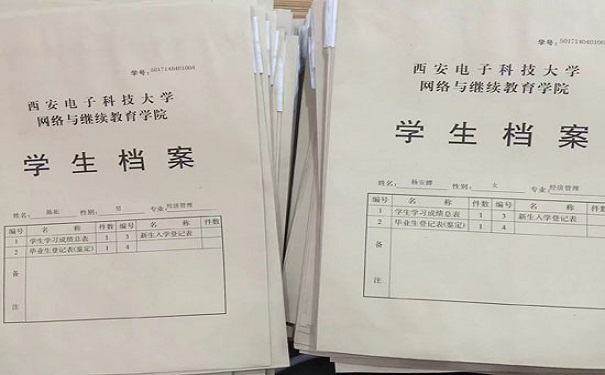 学号:5017140401004
西安电子科技大学
网络与继续教育学院
学生档案
姓名: 性别: 男 专业:经济管理
编号 名称 件数 编号 名称 件数
1 学生学习成绩总表 1 3 新生入学登记表
2 毕业生登记表(鉴定) 1 4
备注
学号:
西安电子科技大学
网络与继续教育学院
学生档案
姓名: 性别: 女 专业:经济管理
编号 名称 件数 编号 名称 件数
1 学生学习成绩总表 1 3 新生入学登记表
2 毕业生登记表(鉴定) 1 4
备注